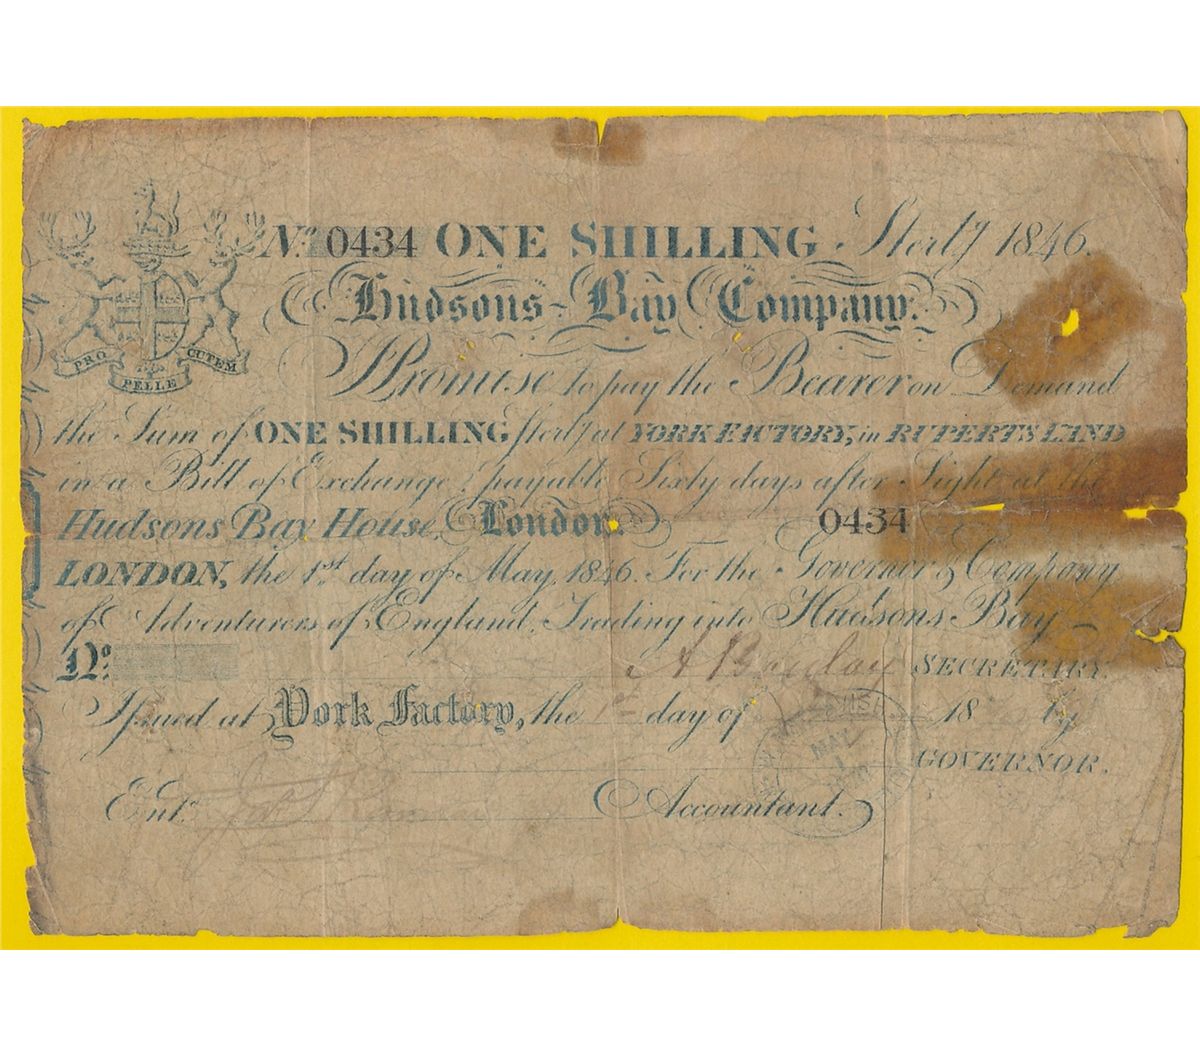 No. 0434 ONE SHILLING Sterlg 1846.
Hudsons-Bay Company.
PRO PELLE CUTEM
I Promise to pay the Bearer on Demand
the Sum of ONE SHILLING Sterlg at YORK FACTORY, in RUPERTS LAND
in a Bill of Exchange payable Sixty days after Sight at the
Hudsons Bay House, London. 0434
LONDON, the 1st day of May, 1846. For the Governor & Company
of Adventurers of England, Trading into Hudsons Bay
No. A Barclay SECRETARY.
Issued at York Factory, the 1st day of 18 by
GOVERNOR.
MAY 1
Entd. Accountant.